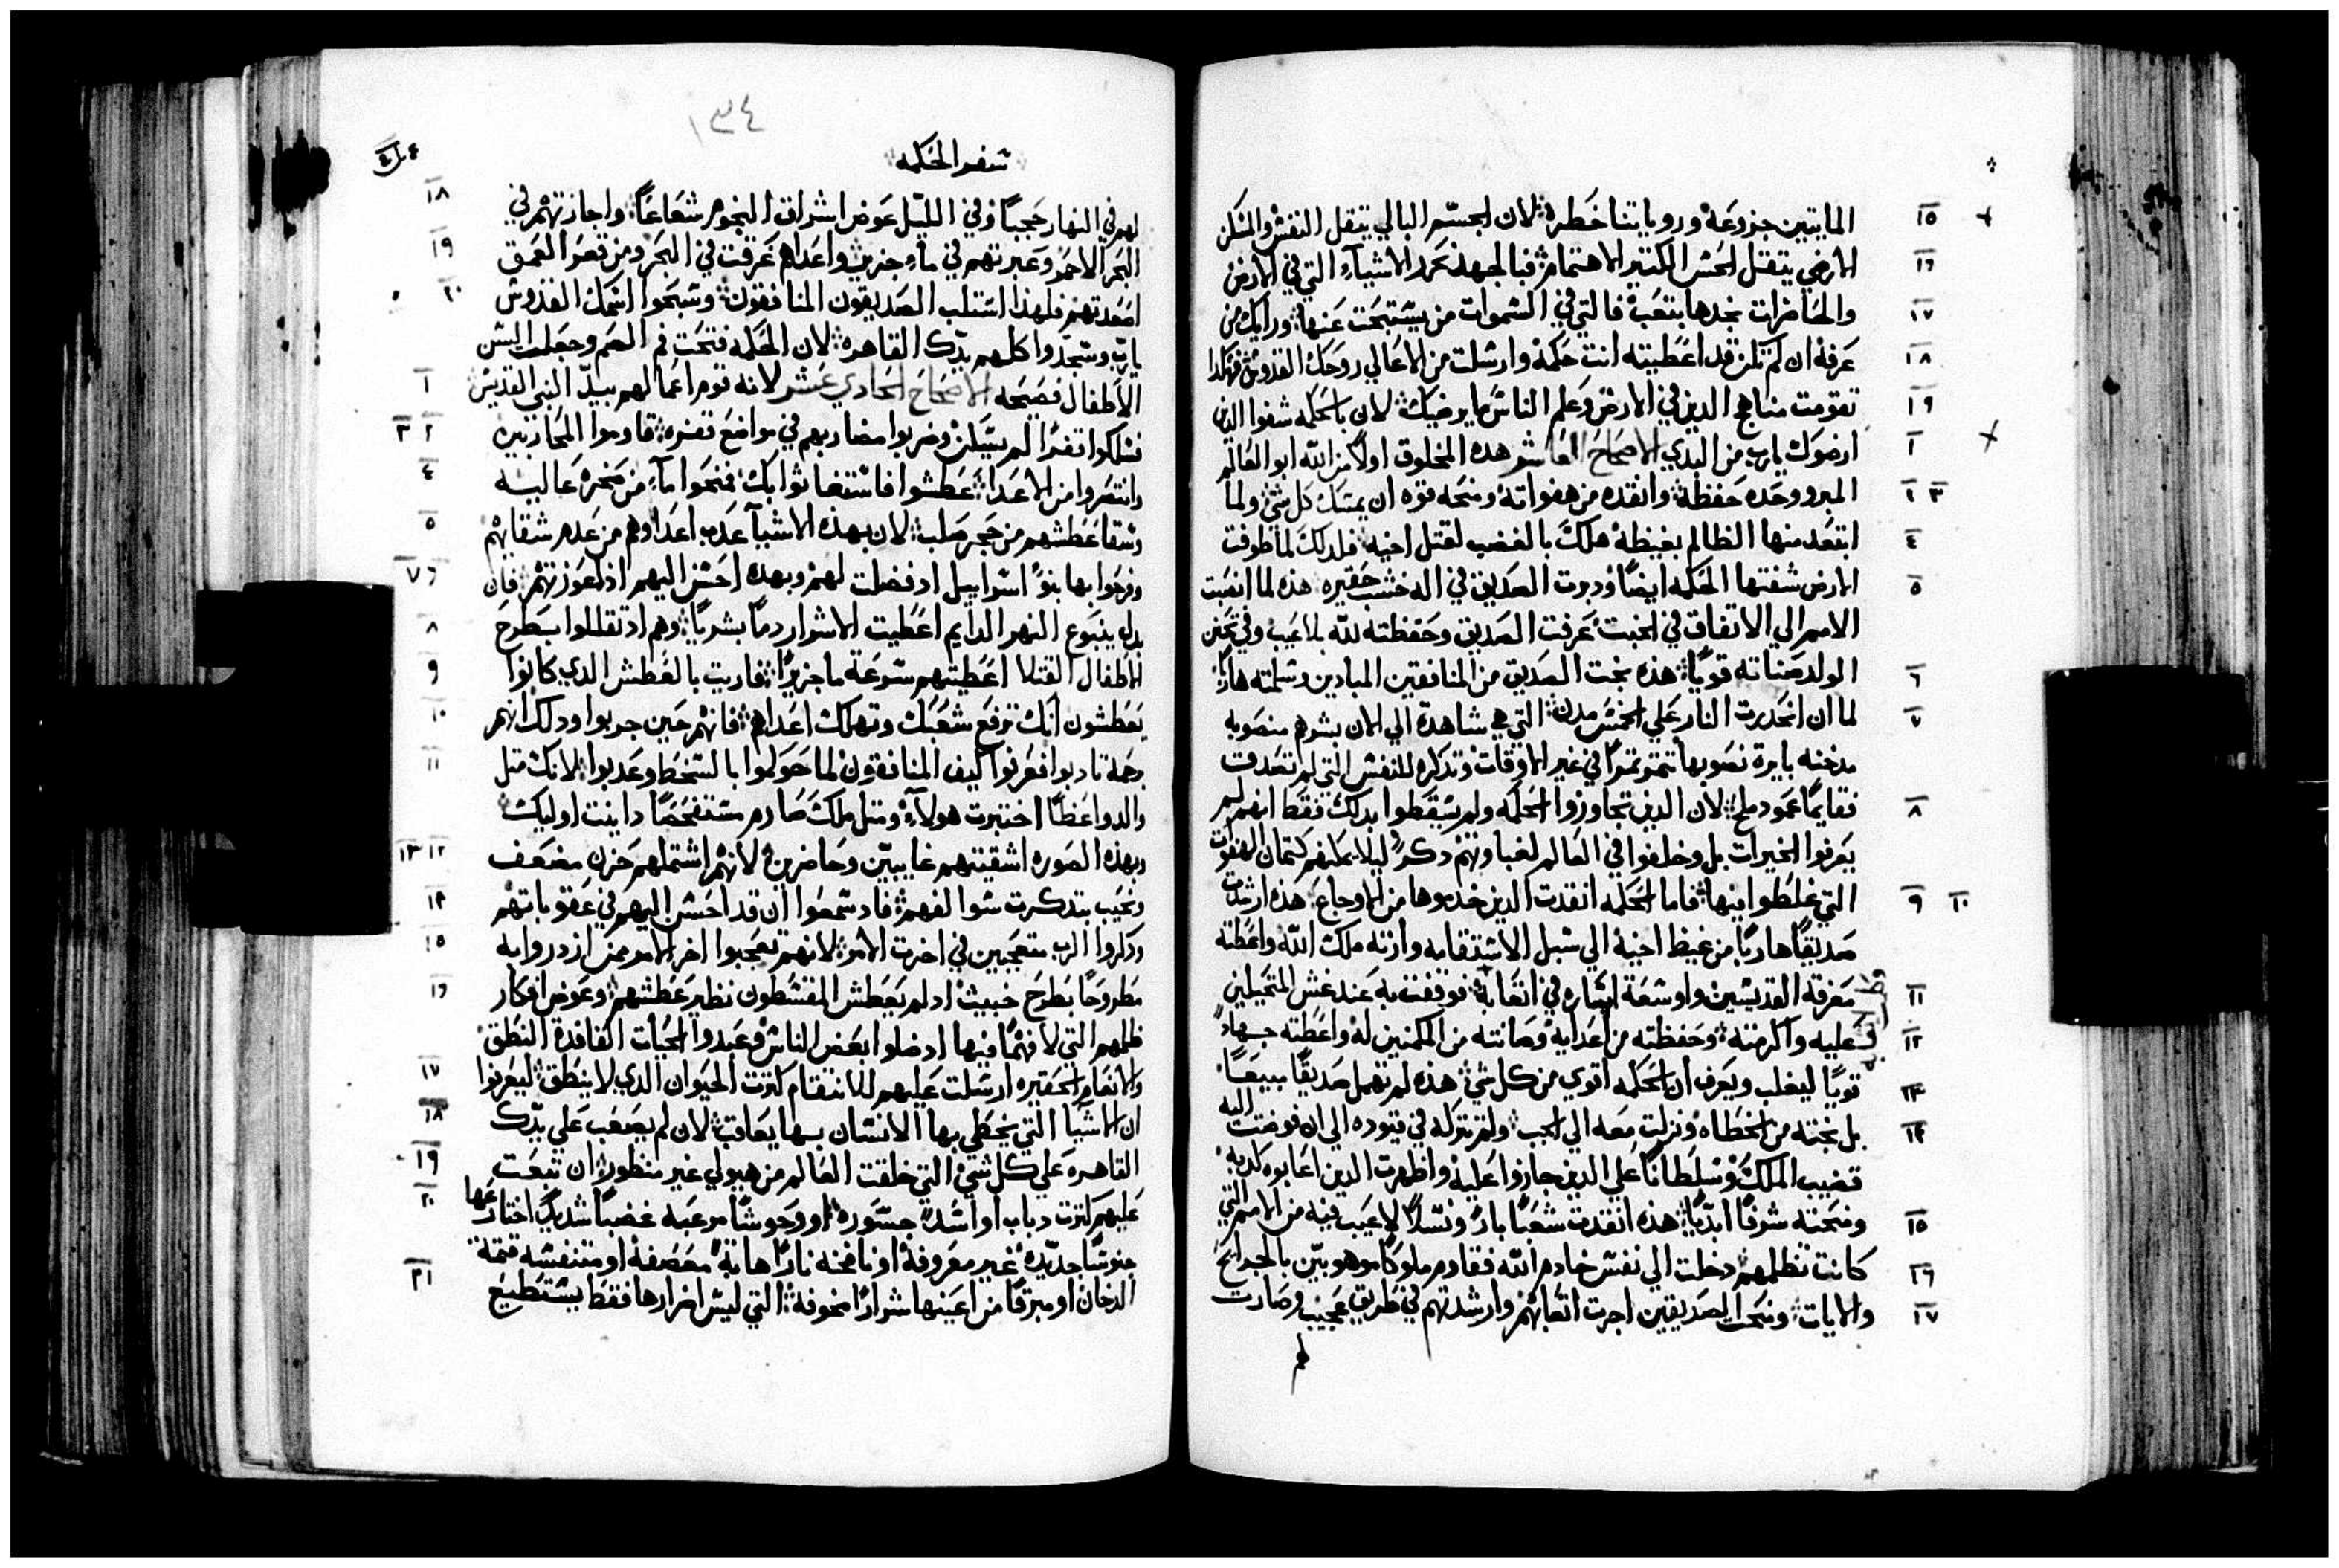 ١٥ المايتين جزوعة ورويايتنا خطرة لان الجسم البالي يتقل النفش والمسكن
١٦ الارضي يتقتل الحش الكتير الاهتمام فبالجهد نحد الاشياء التي في الارض
١٧ والحاضرات نجدها بتعب فالتي في السموات من يستبحث عنها ورايك من
١٨ عرفه ان لم تكن قد اعطيته انت حكمة وارشلت من الاعالي روحك القدوش فهكدا
١٩ تقومت مناهج الدين في الارض وعلم الناش ما يرضيك لان بالحكمه شفوا الدين
١ ارضوك يارب من البدي الاصحاح العاشر هده المخلوق اولا من الله ابو العالم
٢ ٣ المبرو وحده حفظته وانقده من هفواته ومنحه قوه ان يمسك كل شي ولما
٤ ابتعد منها الظالم بغيظه هلك بالغضب لقتل اخيه فلدلك لما طوفت
٥ الارض شفتها الحكمه ايضا ودبرت الصديق في اله خشب حقيره هده لما انصبت
الامم الي الاتفاق في الخبث عرفت الصديق وحفظته لله بلا عيب وفي تحنن
٦ الولد صانته قويا هده نجت الصديق من المنافقين المبادين وسلمته هاربا
٧ لما ان انحدرت النار علي الخمش مدن التي هي شاهدة الي الان بشرهم منصوبه
مدخنه بايرة نصوبها تنمو تمرا في غير الاوقات وتدكره للنفش التي لم تصدق
٨ فقايما عمود ملح لان الدين تجاوزوا الحكمه ولم يسقطوا بدلك فقط انهم لم
يعرفوا الخيرات بل وخلفوا في العالم لغباوتهم دكرا ليلا يمكنهم كتمان الهفوات
٩ ١٠ التي غلطوا فيها فاما الحكمه انقدت الدين خدموها من الاوجاع هده ارشدت
صديقا هاربا من غيظ اخيه الي شبل الاشتقامه وارته ملك الله واعطته
١١ معرفة القديسين واوشعة ايشاره في اتعابه فوقفت به عند غش المتحيلين
١٢ عليه واكرمته وحفظته من اعدايه وصانته من المكمنين له واعطته جهادا
١٣ قويا ليغلب ويعرف ان الحكمه اقوي من كل شي هده لم تهمل صديقا مبيعا
١٤ بل نجته من الخطاه ونزلت معه الي الجب ولم تتركه في قيوده الي ان فوضت اليه
قضيب الملك وسلطانا علي الدين جاروا عليه واظهرت الدين اعابوه كدبه
١٥ ومنحته شرفا ابديا هده انقدت شعبا بارا ونسلا لاعيب فيه من الامم التي
١٦ كانت تظلمهم دخلت الي نفش خادم الله فقاوم ملوكا موهوبين بالجرايح
١٧ والايات ومنحت الصديقين اجرت اتعابهم وارشدتهم في طريق عجيب وصارت
لهم
١٣٤
شفر الحكمه
١٨ لهم في النهار حجبا وفي الليل عوض اشراق النجوم شعاعا واجازتهم في
١٩ البحر الاحمر وعبرتهم في ماء جزيل واعداهم غرقت في البحر ومن قعر العمق
٢٠ اصعدتهم فلهدا استلب الصديقون المنافقون وشبحوا اشمك القدوش
يارب ومجدوا كلهم يدك القاهره لان الحكمه فتحت فم الصم وجعلت الشن
١ الاطفال فصيحه الاصحاح الحادي عشر لانه قوم اعمالهم بيد النبي القديش
٢ ٣ فسلكوا قفرا لم يسكن وضربوا مضاربهم في مواضع قفره قاوموا المحاربين
٤ وانتصروا من الاعدا عطشوا فاستغاثوا بك فمنحوا ماء من صخره عاليه
٥ وشقا عطشهم من حجر صلب لان بهده الاشيا عدب اعداوهم من عدم شقايهم
٦ ٧ وفرحوا بها بنو اشراييل اد فضلت لهم وبهده احشن اليهم اد اعوزتهم فان
٨ بدل ينبوع النهر الدايم اعطيت الاشرار دما بشريا وهم اد تقللوا بطرح
٩ الاطفال القتلا اعطيتهم شوعة ما جزيزا فاريت بالعطش الدي كانوا
١٠ يعطشون انك ترفع شعبك وتهلك اعداهم فانهم حين جربوا ودلك انهم
١١ برحمة تادبوا فعرفوا كيف المنافقون لما حوكموا بالسخط وعدبوا لانك متل
والد واعظا اختبرت هولاء ومتل ملك صارم مستفحصا داينت اوليك
١٢ ١٣ وبهده الصوره اشقيتهم غايبين وحاضرين لانهم اشتملهم حزن مضعف
١٤ ونحيب بتدكرت شوالفهم فاد شمعوا ان قد احشن اليهم في عقوباتهم
١٥ ودكروا الرب متعجبين في اخرت الامر لانهم تعجبوا اخر الامر ممن ازدروا به
١٦ مطروحا بطرح خبيث اد لم يعطش المقسطون نظير عطشهم وعوض افكار
ظلمهم التي لا فهما فيها اد ضلوا بعض الناش وعبدوا الحيات الفاقدة النطق
١٧ والانعام الحقيره ارسلت عليهم للانتقام كترت الحيوان الدي لا ينطق ليعرفوا
١٨ ان الاشيا التي يخطي بها الانشان بها يعاقب لان لم يصعب علي يدك
١٩ القاهره علي كل شي التي خلقت العالم من هيولي غير منظور ان تبعت
٢٠ عليهم كترت دباب او اشدا جسوره او وحوشا مرعبه غضبا شديدا اختراعها
وحوشا جديده غير معروفة او نافخه نارا هابة معصفة او متنفسه قتمة
٢١ الدخان او مبرقا من اعينها شرارا مخوفة التي ليش اضرارها فقط يستطيع